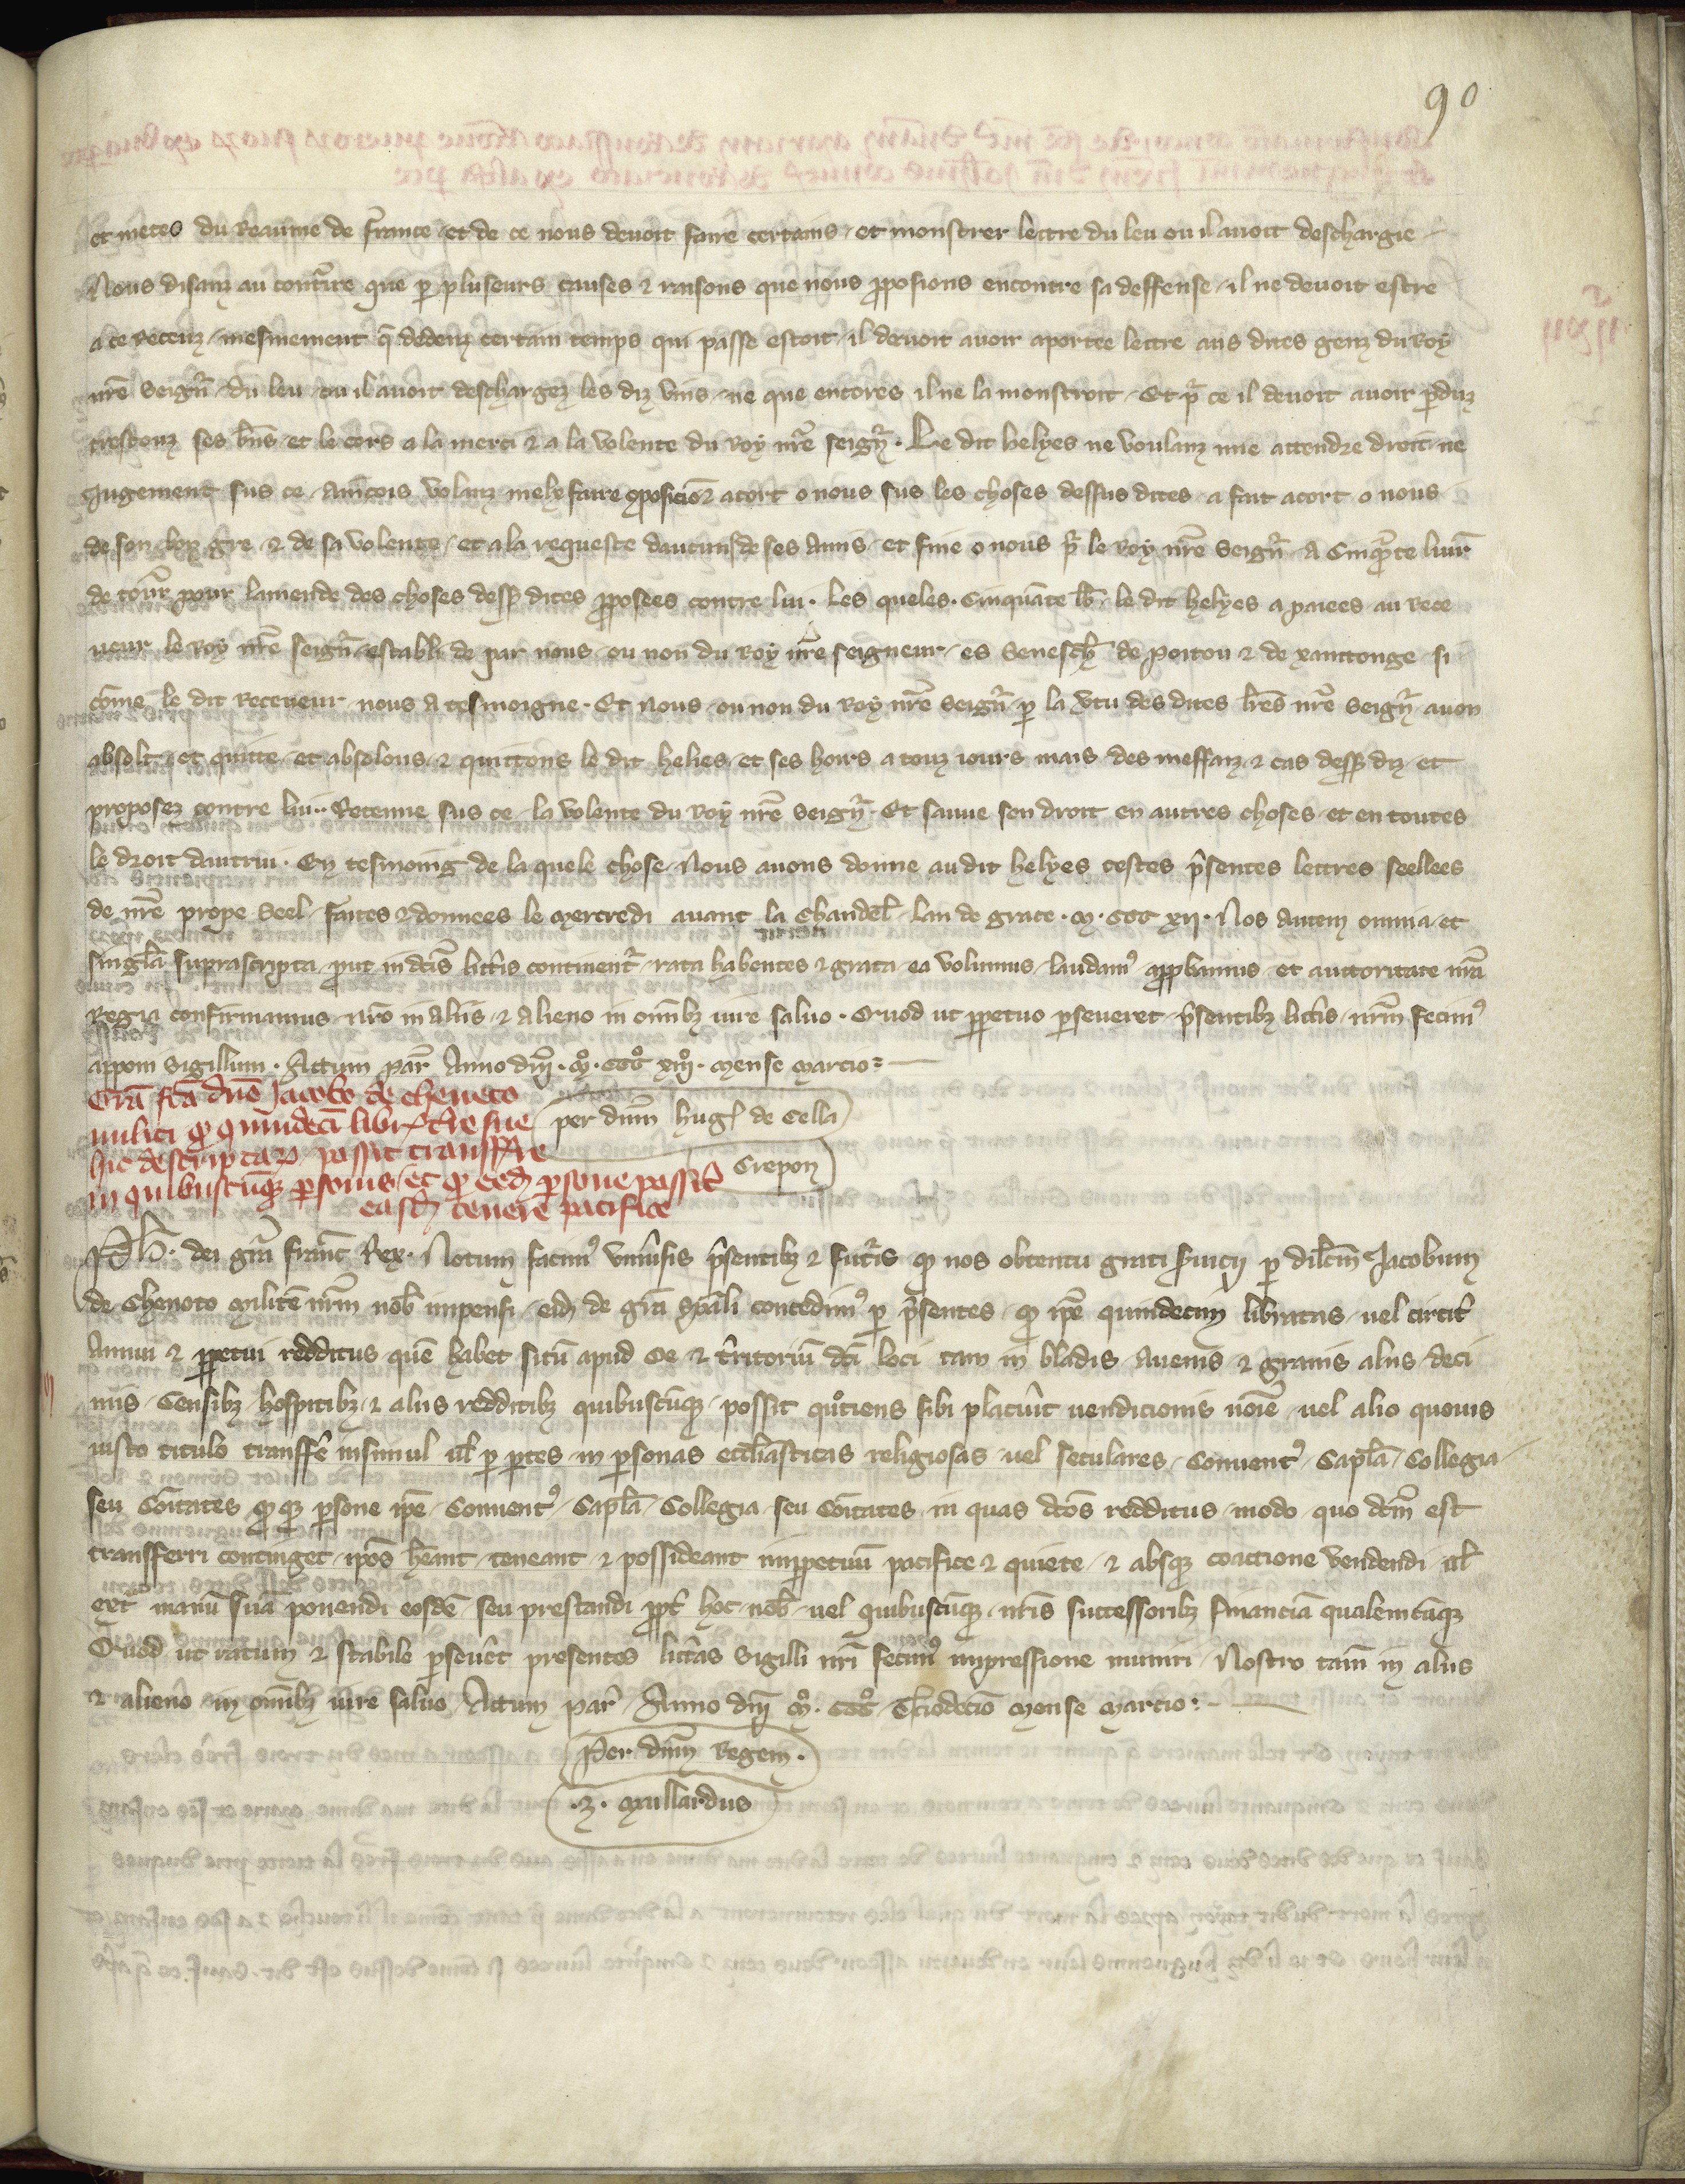 90
et metes du Reaume de france et de ce nous devoit faire certains et monstrer lettre du leu ou il avoit deschargie
Nous disanz au contᵃire que p pluseurs causes ⁊ raisons que nous pposions encontre sa deffense il ne devoit estre
a ce Receuz mesmement q̄ dedenz certain temps qui passe estoit il devoit avoir aportee lettre aus dites genz du Roy
nr̄e Seign̄ du leu ou il avoit deschargez les diz vins ne que encores il ne la monstroit Et pᵃ ce il devoit avoir pduz
trestouz ses bn̄s et le cors a la merci ⁊ a la volente du Roy nr̄e seign̄ . Le dit helyes ne voulanz mie attendre droit ne
Jugement sus ce Aincois volanz mely faire 9posicion ⁊ acort o nous sus les choses dessus dites a fait acort o nous
de son bon gre ⁊ de sa volente et a la requeste daucuns de ses amis et fine o nous pᵃ le Roy nr̄e Seign̄ A Cinqᵃte liur̄
de tour̄ pour lamende des choses dess9 dites pposees contre lui . Les queles . Cinquāte lb̄ . le dit helyes a paiees au Rece
ueur le Roy nr̄e seign̄ establi de par nous ou non du Roy nr̄e seigneur es Senesch̄ de poitou ⁊ de xanctonge si
cōme le dit Receueur nous a tesmoigne . Et Nous ou non du Roy nr̄e Seign̄ p la vtu des dites lr̄es nr̄e Seign̄ auon
absolt et quitte et absolons ⁊ quittons le dit helies et ses hoirs a touz iours mais des meffaiz ⁊ cas dess9 diz et
proposez contre lui . Retenue sus ce la volente du Roy nr̄e Seign̄ . Et sauue son droit en autres choses et en toutes
le droit dautrui . En tesmoing de la quele chose Nous auons donne au dit helyes cestes p̄sentes lettres seellees
de nr̄e prope Seel faites ⁊ donnees le Mercredi auant la Chandel̄ . Lan de grace . M . CCC xii . Nos Autem omnia et
singl̄a suprascripta put in dc̄is litt̄is continent᷑ rata habentes ⁊ grata ea volumus laudam9 appbamus et auctoritate nr̄a
Regia confirmamus nr̄o in aliis ⁊ alieno in om̄ibȝ iure saluo . Quod ut ppetuo perseueret p̄sentibȝ litt̄is nr̄m fecim9
apponi Sigillum . Actum par̄ Anno dn̄i . Mᵒ . CCCᵒ xiiiᵒ . Mense Marcio
Grā fc̄a dn̄o Jacobo de cheneto
militi qᵈ quindecī libr̄ t̄re sue
hic descriptaꝝ possit transffre
in quibuscūqȝ psonis et qᵈ eedȝ psone possīt
easdȝ tenere pacifice
per dn̄m huḡ de Cella
Crepon
Ph̄ . dei grā franc̄ Rex . Notum facim9 vniu͛sis p̄sentibȝ ⁊ futur̄is qᵈ nos obtentu grati s͛uicij p dilc̄m Jacobum
de Cheneto Militē nr̄m nob̄ impensi eidȝ de grā sp̄ali concedim9 p p̄sentes qᵈ ip̄e quindecim libratas vel circit͛
Annui ⁊ ppetui redditus quē habet sitū apud Oe ⁊ t͛ritoriū dc̄i loci tam in bladis Auenis ⁊ granis aliis deci
mis . Censibȝ hospitibȝ ⁊ aliis redditibȝ quibuscūqȝ possit qᵒtiens sibi placu͛it uendicionis noīe vel alio quouis
iusto titulo transffe insimul ul̄ p ptes in psonas eccl̄iasticas religiosas vel seculares Conuent9 Capl̄a Collegia
seu Cōitates qᵈ qȝ psone ip̄e Conuent9 Capl̄a Collegia seu Cōitates in quas dc̄os redditus modo quo dc̄m est
transfferri continget ip̄os hēant teneant ⁊ possideant imppetuū pacifice ⁊ quiete ⁊ absqȝ coactione vendendi ul̄
ext͛ manū suā ponendi eosdē seu prestandi ppt͛ hoc nob̄ vel quibuscūqȝ nr̄is successoribȝ financiā qualemcūqȝ
Quod ut ratum ⁊ stabile pseu͛et presentes litt͛as Sigilli nr̄i fecim9 impressione muniri Nostro tam̄ in aliis
⁊ alieno in om̄ibȝ iure saluo Actum par̄ Anno dn̄i Mᵒ . CCCᵒ Terciodecīo Mense Marcio
Per dn̄m Regem .
.J. Maillardus